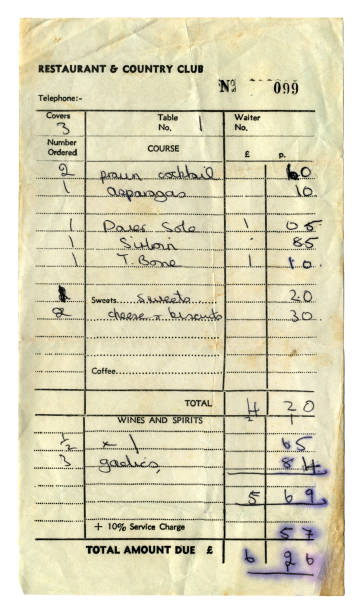 RESTAURANT & COUNTRY CLUB
No 099
Telephone:-
Covers 3 Table No. 1 Waiter No.
Number Ordered COURSE £ p.
2 prawn cocktail 60
1 asparagas 10
1 Dover Sole 1 05
1 Sirloin . 85
1 T. Bone 1 10
1 Sweets..... sweets 20
2 cheese + biscuits 30
Coffee
TOTAL 4 20
WINES AND SPIRITS
1/2 x 1 65
3 gaelics 84
5 69
+ 10% Service Charge 57
TOTAL AMOUNT DUE £ 6 26